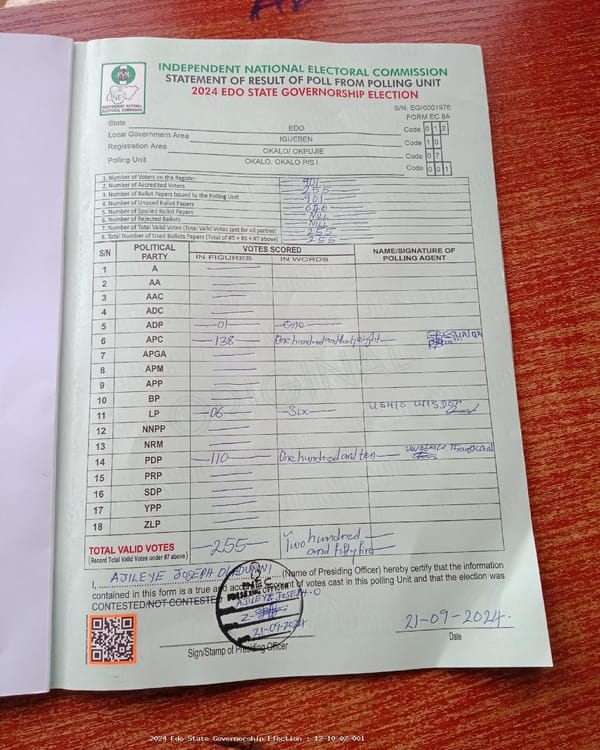 INDEPENDENT NATIONAL ELECTORAL COMMISSION
STATEMENT OF RESULT OF POLL FROM POLLING UNIT
2024 EDO STATE GOVERNORSHIP ELECTION
INDEPENDENT NATIONAL ELECTORAL COMMISSION
S/N: EG/0001976
FORM EC 8A
State EDO Code 0 1 2
Local Government Area IGUEBEN Code 1 0
Registration Area OKALO/ OKPUJIE Code 0 7
Polling Unit OKALO, OKALO P/S I Code 0 0 1
1. Number of Voters on the Register 901
2. Number of Accredited Voters 255
3. Number of Ballot Papers Issued to the Polling Unit 901
4. Number of Unused Ballot Papers
5. Number of Spoiled Ballot Papers NILL
6. Number of Rejected Ballots NILL
7. Number of Total Valid Votes (Total Valid Votes cast for all parties) 255
8. Total Number of Used Ballots Papers (Total of #5 + #6 + #7 above) 255
S/N POLITICAL PARTY VOTES SCORED NAME/SIGNATURE OF POLLING AGENT
IN FIGURES IN WORDS
1 A
2 AA
3 AAC
4 ADC
5 ADP 01 One
6 APC 138 One hundred and thirty eight
7 APGA
8 APM
9 APP
10 BP
11 LP 06 Six USHIO WISDOM
12 NNPP
13 NRM
14 PDP 110 One hundred and ten
15 PRP
16 SDP
17 YPP
18 ZLP
TOTAL VALID VOTES 255 Two hundred and fifty five
(Record Total Valid Votes under #7 above)
I, AJILEYE JOSEPH (Name of Presiding Officer) hereby certify that the information
contained in this form is a true and account of votes cast in this polling Unit and that the election was
CONTESTED/NOT CONTESTED
AJILEYE JOSEPH. O
21-09-2024
21-09-2024.
Sign/Stamp of Presiding Officer
Date
2024 Edo State Governorship Election : 12-10-07-001